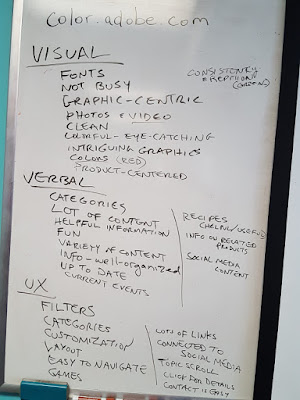 color.adobe.com
VISUAL
FONTS
NOT BUSY
GRAPHIC-CENTRIC
PHOTOS & VIDEO
CLEAN
COLORFUL - EYE-CATCHING
INTRIGUING GRAPHICS
COLORS (RED)
PRODUCT-CENTERED
CONSISTENCY
& REPETITION
VERBAL
CATEGORIES
LOT OF CONTENT
HELPFUL INFORMATION
FUN
VARIETY OF CONTENT
INFO - well-organized
UP TO DATE
CURRENT EVENTS
RECIPES
INFO ON RELATED
PRODUCTS
SOCIAL MEDIA
CONTENT
UX
FILTERS
CATEGORIES
CUSTOMIZATION
LAYOUT
EASY TO NAVIGATE
GAMES
LOTS OF LINKS
CONNECTED TO
SOCIAL MEDIA
TOPIC SCROLL
CLICK FOR DETAILS
CONTACT IS EASY